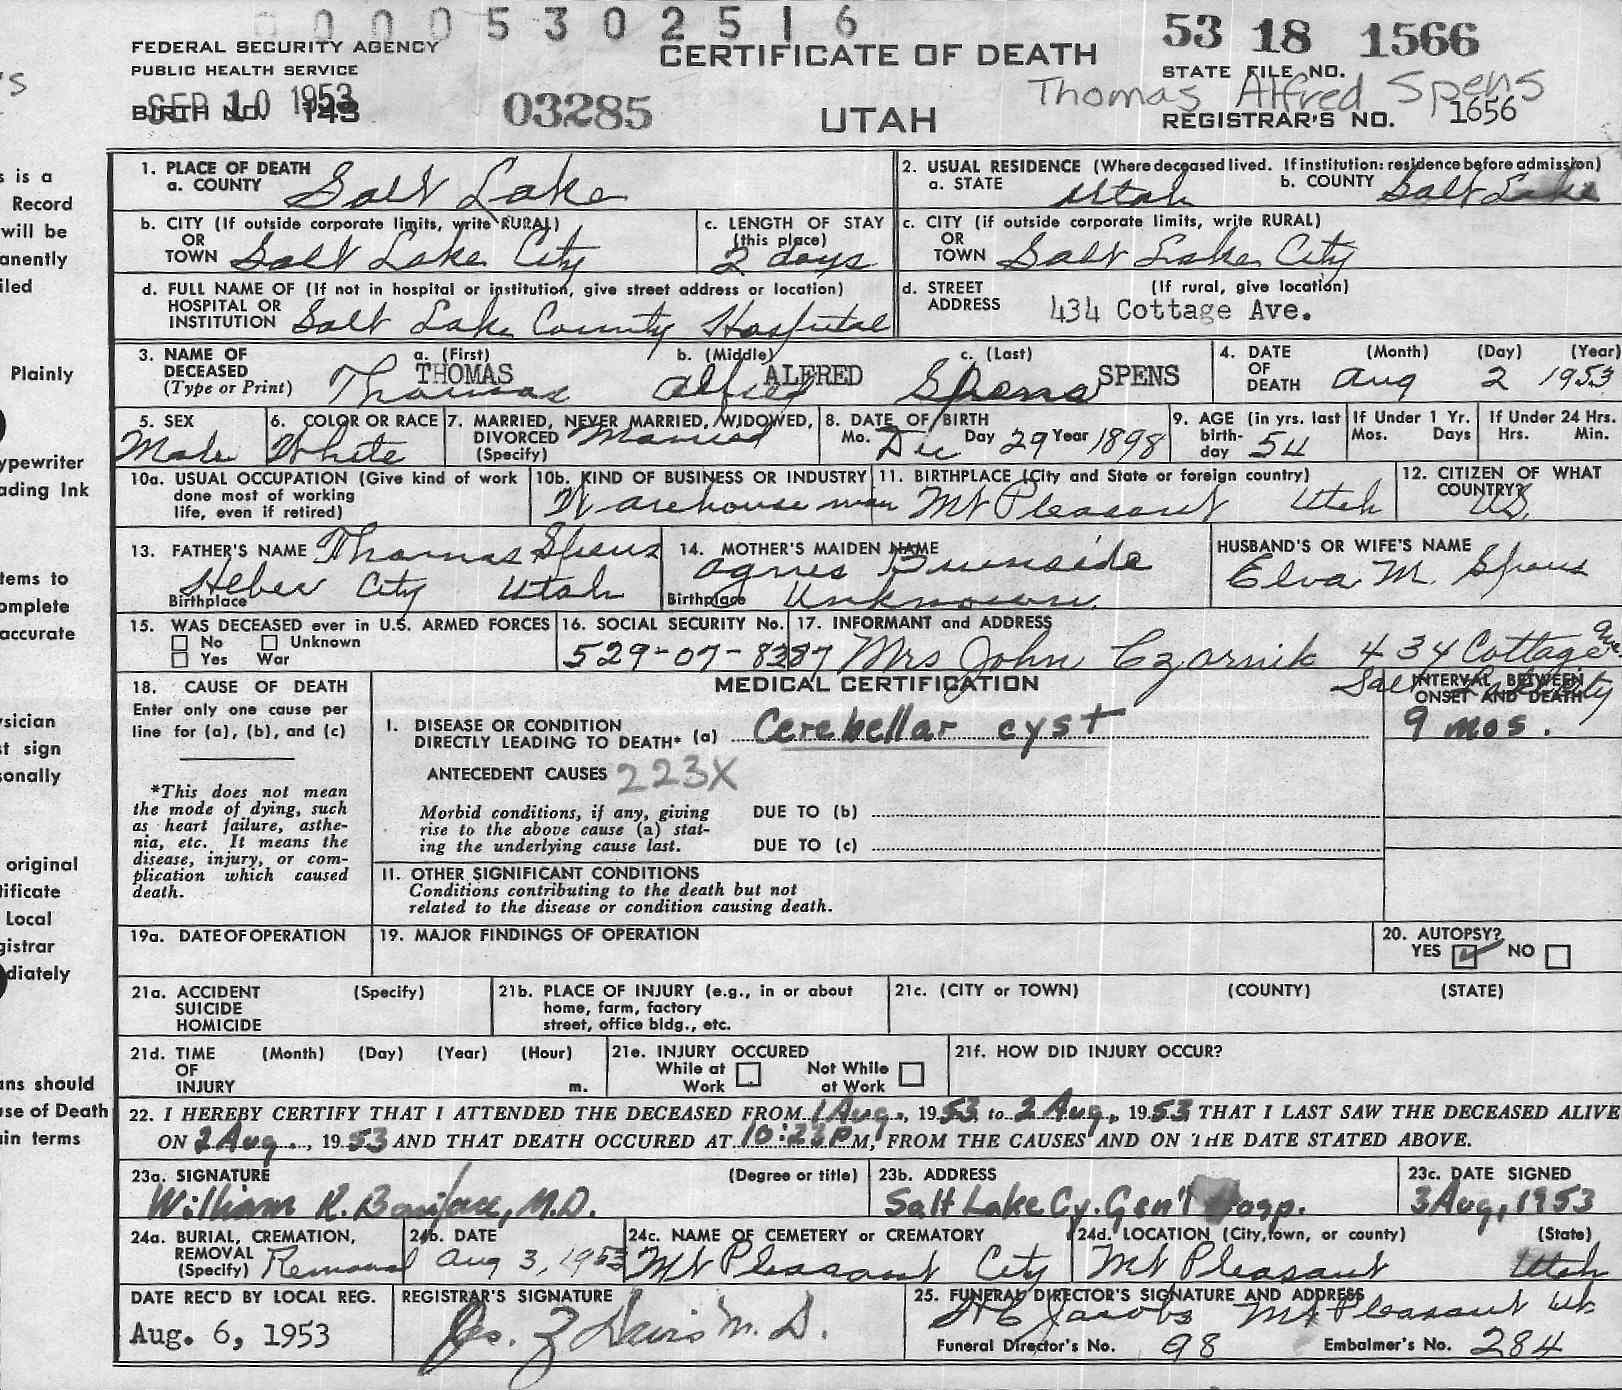 0 0 0 5 3 0 2 5 1 6
FEDERAL SECURITY AGENCY
PUBLIC HEALTH SERVICE
BIRTH NO. 143
SEP 10 1953
03285
CERTIFICATE OF DEATH
UTAH
53 18 1566
STATE FILE NO.
Thomas Alfred Spens
REGISTRAR'S NO. 1656
's
s is a
Record
will be
anently
iled
Plainly
ypewriter
ading Ink
tems to
omplete
accurate
ysician
st sign
sonally
original
tificate
Local
gistrar
diately
ans should
use of Death
in terms
1. PLACE OF DEATH
a. COUNTY Salt Lake
2. USUAL RESIDENCE (Where deceased lived. If institution: residence before admission)
a. STATE Utah b. COUNTY Salt Lake
b. CITY (If outside corporate limits, write RURAL)
OR
TOWN Salt Lake City
c. LENGTH OF STAY
(this place)
2 days
c. CITY (if outside corporate limits, write RURAL)
OR
TOWN Salt Lake City
d. FULL NAME OF (If not in hospital or institution, give street address or location)
HOSPITAL OR
INSTITUTION Salt Lake County Hospital
d. STREET (If rural, give location)
ADDRESS 434 Cottage Ave.
3. NAME OF DECEASED
(Type or Print)
a. (First) b. (Middle) c. (Last)
THOMAS ALFRED SPENS
Thomas Alfred Spens
4. DATE OF DEATH
(Month) (Day) (Year)
Aug 2 1953
5. SEX
Male
6. COLOR OR RACE
White
7. MARRIED, NEVER MARRIED, WIDOWED,
DIVORCED
(Specify)
Married
8. DATE OF BIRTH
Mo. Dec Day 29 Year 1898
9. AGE (in yrs. last
birth-
day 54
If Under 1 Yr.
Mos. Days
If Under 24 Hrs.
Hrs. Min.
10a. USUAL OCCUPATION (Give kind of work
done most of working
life, even if retired)
10b. KIND OF BUSINESS OR INDUSTRY
Warehouse man
11. BIRTHPLACE (City and State or foreign country)
Mt Pleasant Utah
12. CITIZEN OF WHAT
COUNTRY?
US
13. FATHER'S NAME Thomas Spens
Heber City Utah
Birthplace
14. MOTHER'S MAIDEN NAME
Agnes Burnside
Birthplace Unknown
HUSBAND'S OR WIFE'S NAME
Elva M. Spens
15. WAS DECEASED ever in U.S. ARMED FORCES
No Unknown
Yes War
16. SOCIAL SECURITY No.
529-07-8387
17. INFORMANT and ADDRESS
Mrs John Czarnik 434 Cottage Ave.
Salt Lake City
18. CAUSE OF DEATH
Enter only one cause per
line for (a), (b), and (c)
*This does not mean
the mode of dying, such
as heart failure, asthe-
nia, etc. It means the
disease, injury, or com-
plication which caused
death.
MEDICAL CERTIFICATION
INTERVAL BETWEEN
ONSET AND DEATH
I. DISEASE OR CONDITION
DIRECTLY LEADING TO DEATH* (a) Cerebellar cyst
9 mos.
ANTECEDENT CAUSES 223X
Morbid conditions, if any, giving
rise to the above cause (a) stat-
ing the underlying cause last.
DUE TO (b)
DUE TO (c)
II. OTHER SIGNIFICANT CONDITIONS
Conditions contributing to the death but not
related to the disease or condition causing death.
19a. DATE OF OPERATION
19. MAJOR FINDINGS OF OPERATION
20. AUTOPSY?
YES NO
21a. ACCIDENT (Specify)
SUICIDE
HOMICIDE
21b. PLACE OF INJURY (e.g., in or about
home, farm, factory
street, office bldg., etc.
21c. (CITY or TOWN) (COUNTY) (STATE)
21d. TIME (Month) (Day) (Year) (Hour)
OF
INJURY m.
21e. INJURY OCCURED
While at Work
Not While at Work
21f. HOW DID INJURY OCCUR?
22. I HEREBY CERTIFY THAT I ATTENDED THE DECEASED FROM 1 Aug., 1953 to 2 Aug., 1953 THAT I LAST SAW THE DECEASED ALIVE
ON 2 Aug., 1953 AND THAT DEATH OCCURED AT 10:23 P M, FROM THE CAUSES AND ON THE DATE STATED ABOVE.
23a. SIGNATURE (Degree or title)
William R. Boniface, M.D.
23b. ADDRESS
Salt Lake Cy. Gen'l Hosp.
23c. DATE SIGNED
3 Aug, 1953
24a. BURIAL, CREMATION,
REMOVAL
(Specify) Removal
24b. DATE
Aug 3, 1953
24c. NAME OF CEMETERY or CREMATORY
Mt Pleasant City
24d. LOCATION (City, town, or county) (State)
Mt Pleasant Utah
DATE REC'D BY LOCAL REG.
Aug. 6, 1953
REGISTRAR'S SIGNATURE
Jos. Z Davis M.D.
25. FUNERAL DIRECTOR'S SIGNATURE AND ADDRESS
Jacobs Mt Pleasant
Funeral Director's No. 98 Embalmer's No. 284